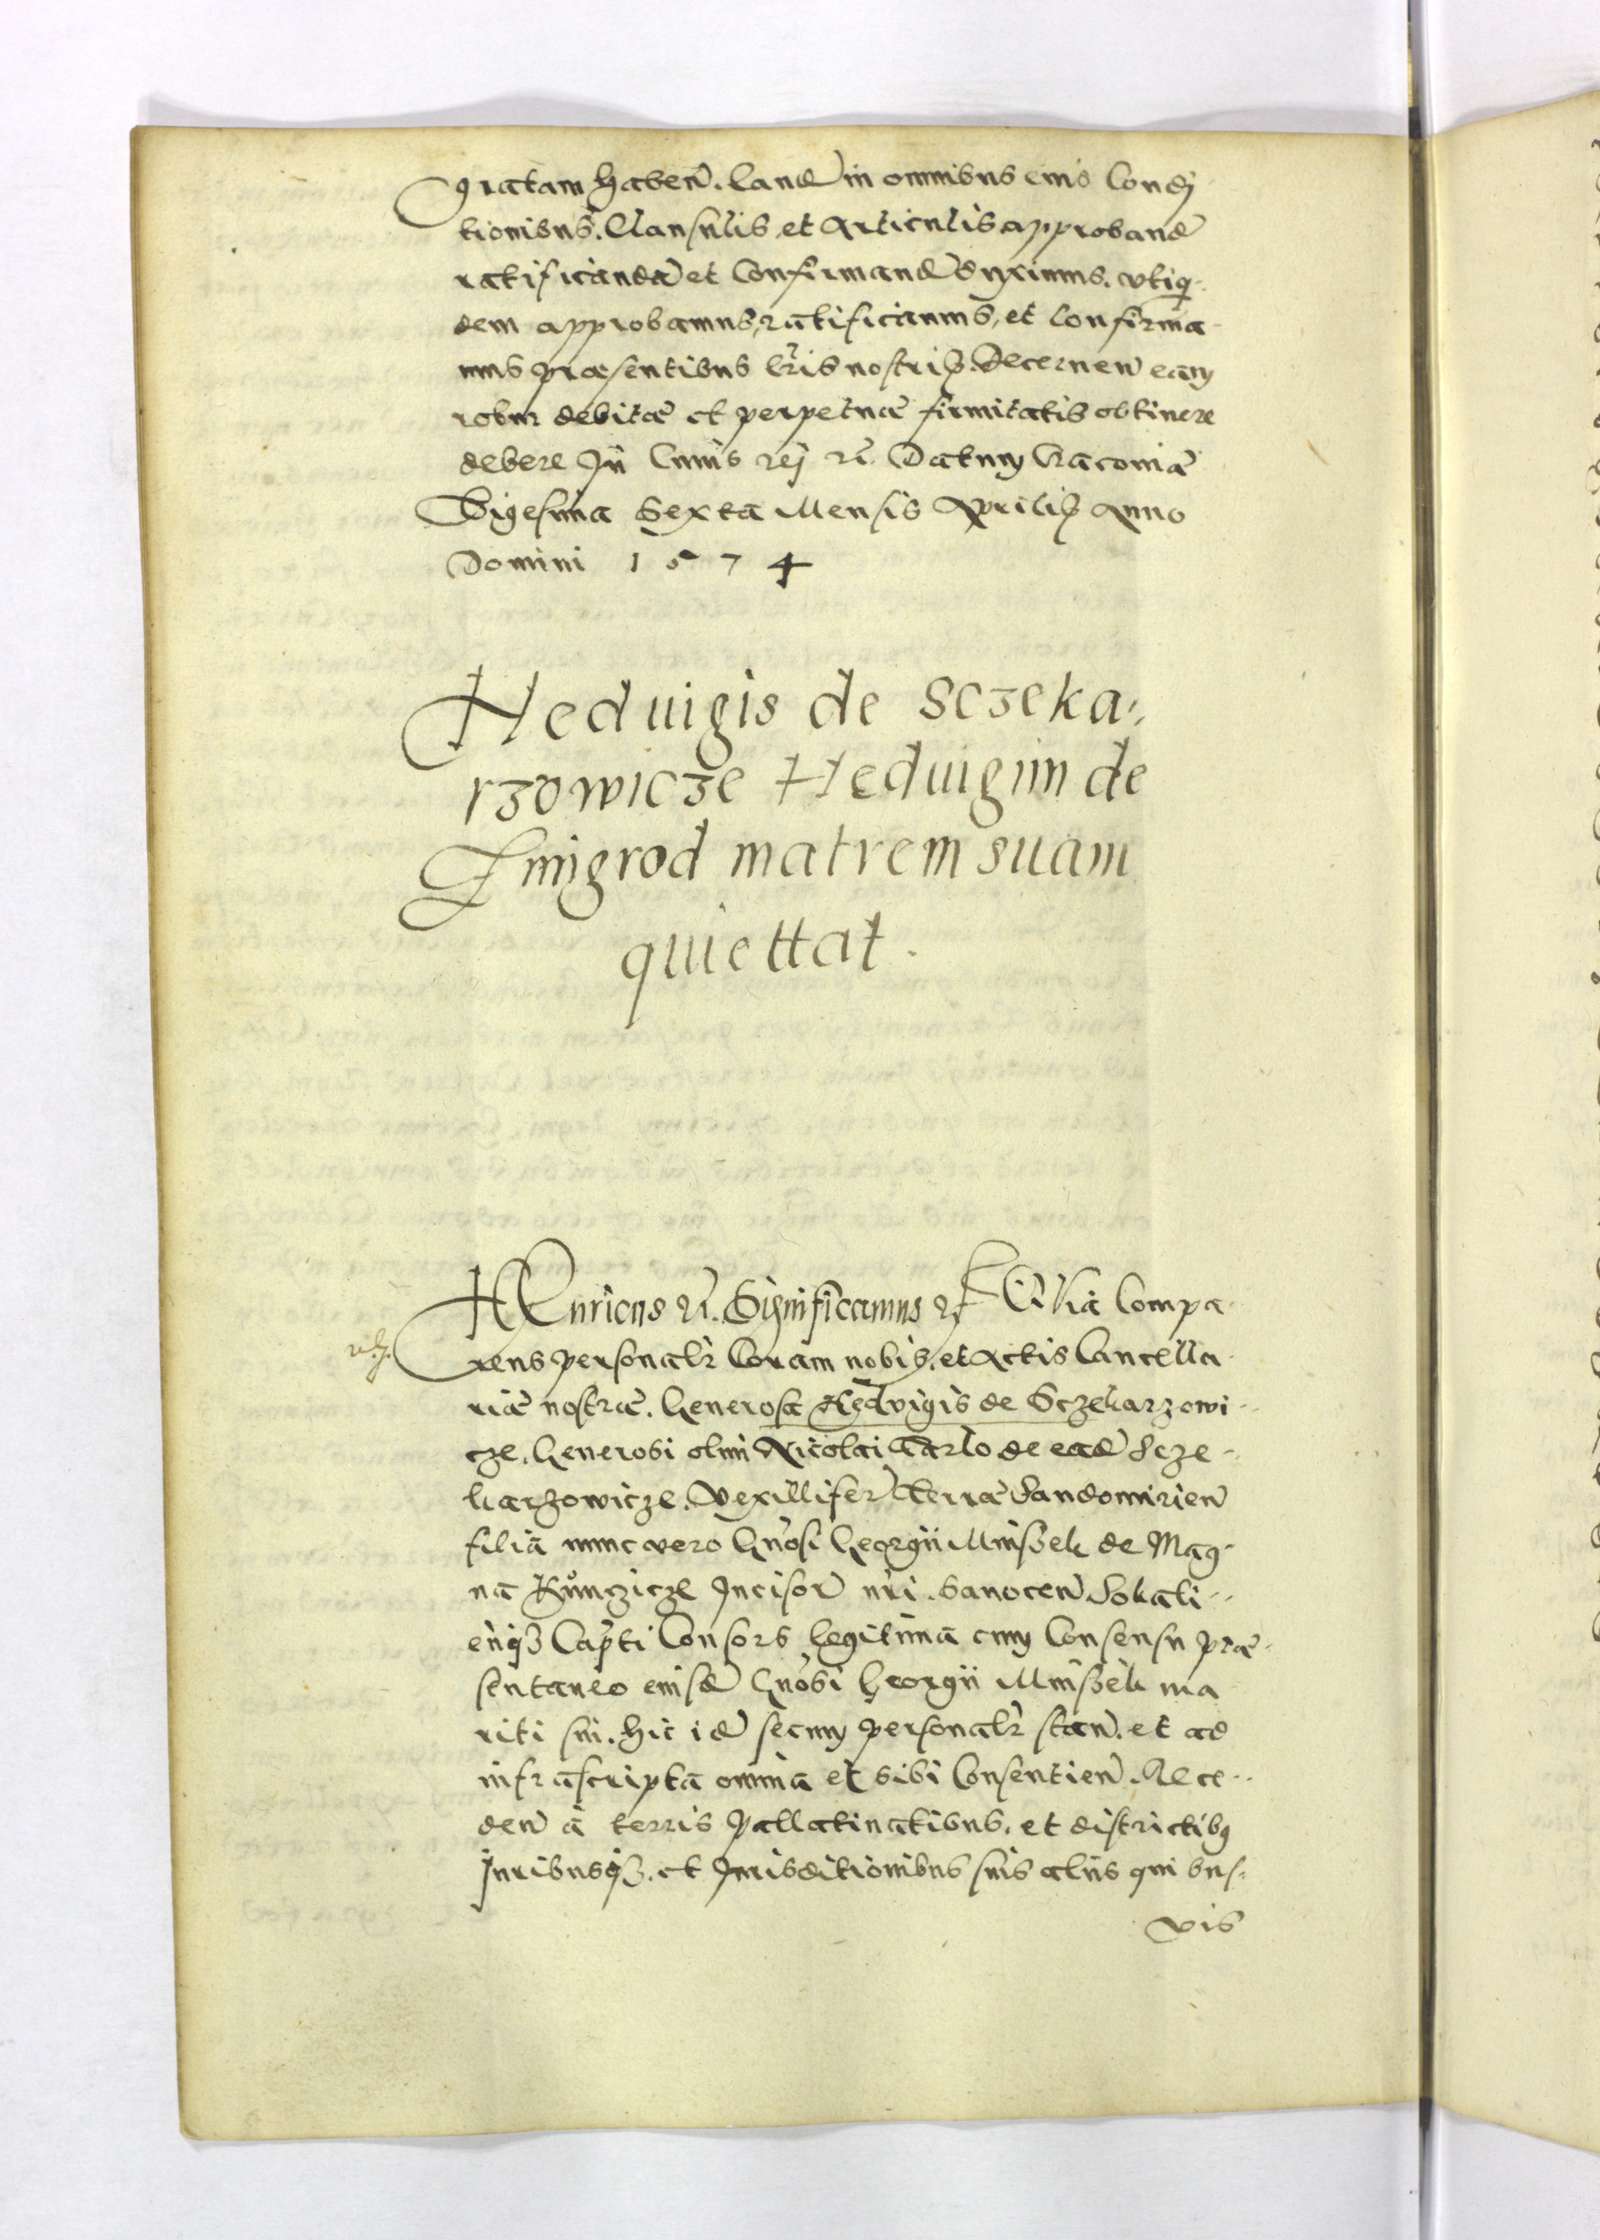 gratam haben̄. eand̄ in omnibus eius Condi
tionibus. Clausulis et Articulis approband̄
ratificanda et Confirmand̄ duximus. vtiq
dem approbamus, ratificamus, et Confirma
mus præsentibus lr̃is nostris. Decernen̄ eam
robur debitæ et perpetuæ firmitatis obtinere
debere In Cuius rej r̄i. Datum Cracouiæ
Vigesima Sexta Mensis Aprilis Anno
Domini 1574
Heduigis de Sczeka,,
rzowicze Heduigim de
Zmigrod matrem suam
quiettat.
HEnricus r̄i. Significamus r̄i Quia Compa
rens personalr̃ Coram nobis. et Actis Cancella
riæ nostræ. Generosa Hedvigis de Sczekarzowi
cze. Generosi olim Nicolai Tarlo de ead̄ Scze
karzowicze. Vexilliferj Terræ Sandomirien̄
filia nunc vero Gn̄osi Georgii Mnissek de Mag
na Kunczicze Incisor̄ nr̃i. Sanocen̄ Sokali
en̄q3 Cap̃ti Consors legitima cum Consensu præ
sentaneo eiusd̄ Gn̄osi Georgii Mnissek ma
riti sui. hic id̄ secum personalr̃ stan̄. et ad
infrascripta omnia et sibi Consentien̄. Rece
den̄ à terris Pallatinatibus. et districtibus
Iuribusq3. et Jurisditionibus suis aliis quibus
vis